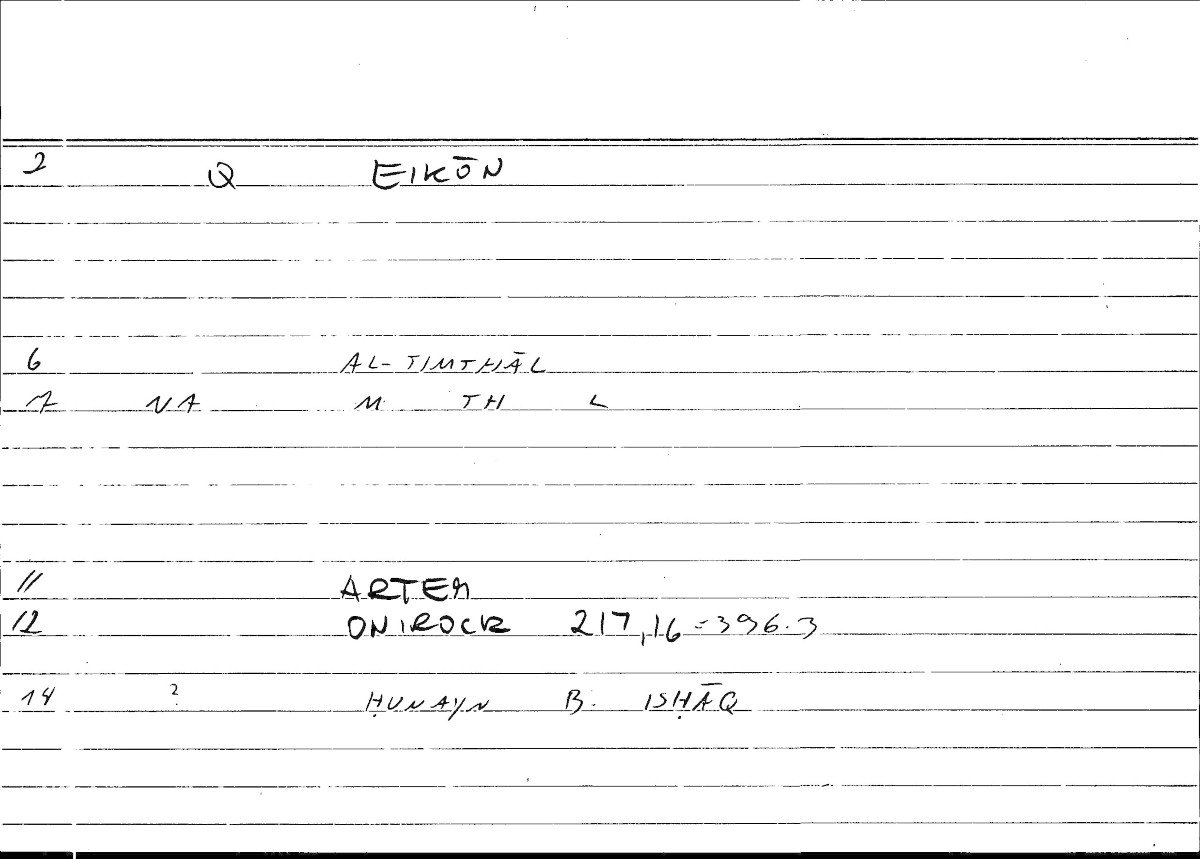 2 Q EIKŌN
6 AL-TIMTHĀL
7 NA M TH L
11 ARTEM
12 ONIROCR 217,16=396.3
14 ? ḤUNAYN B. ISḤĀQ